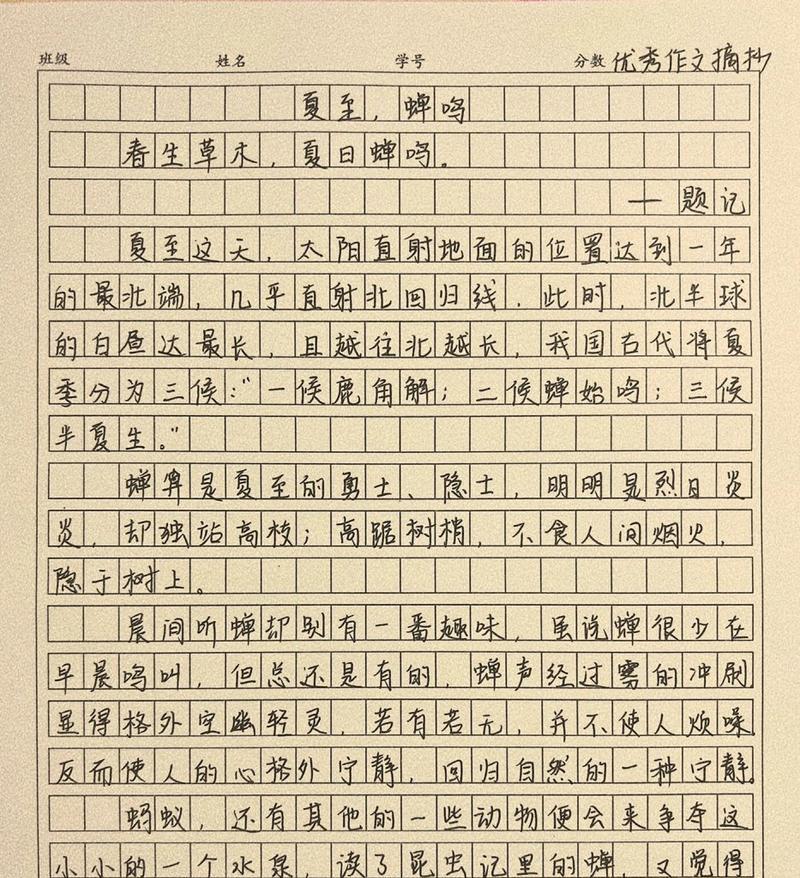 班级 姓名 学号 分数 优秀作文摘抄
夏至，蝉鸣
春生草木，夏日蝉鸣。
—题记
夏至这天，太阳直射地面的位置达到一年
的最北端，几乎直射北回归线．此时，北半球
的白昼达最长，且越往北越长，我国古代将夏
季分为三候："一候鹿角解；二候蝉始鸣；三候
半夏生。"
蝉算是夏至的勇士、隐士，明明是烈日炎
炎，却独站高枝；高踞树梢，不食人间烟火，
隐于树上。
晨间听蝉却别有一番趣味，虽说蝉很少在
早晨鸣叫，但总还是有的，蝉声经过雾的冲刷
显得格外空幽轻灵，若有若无，并不使人烦噪，
反而使人的心格外宁静，回归自然的一种宁静。
蚂蚁，还有其他的一些动物便会来争夺这
小小的一个水泉，读了昆虫记里的蝉，又觉得